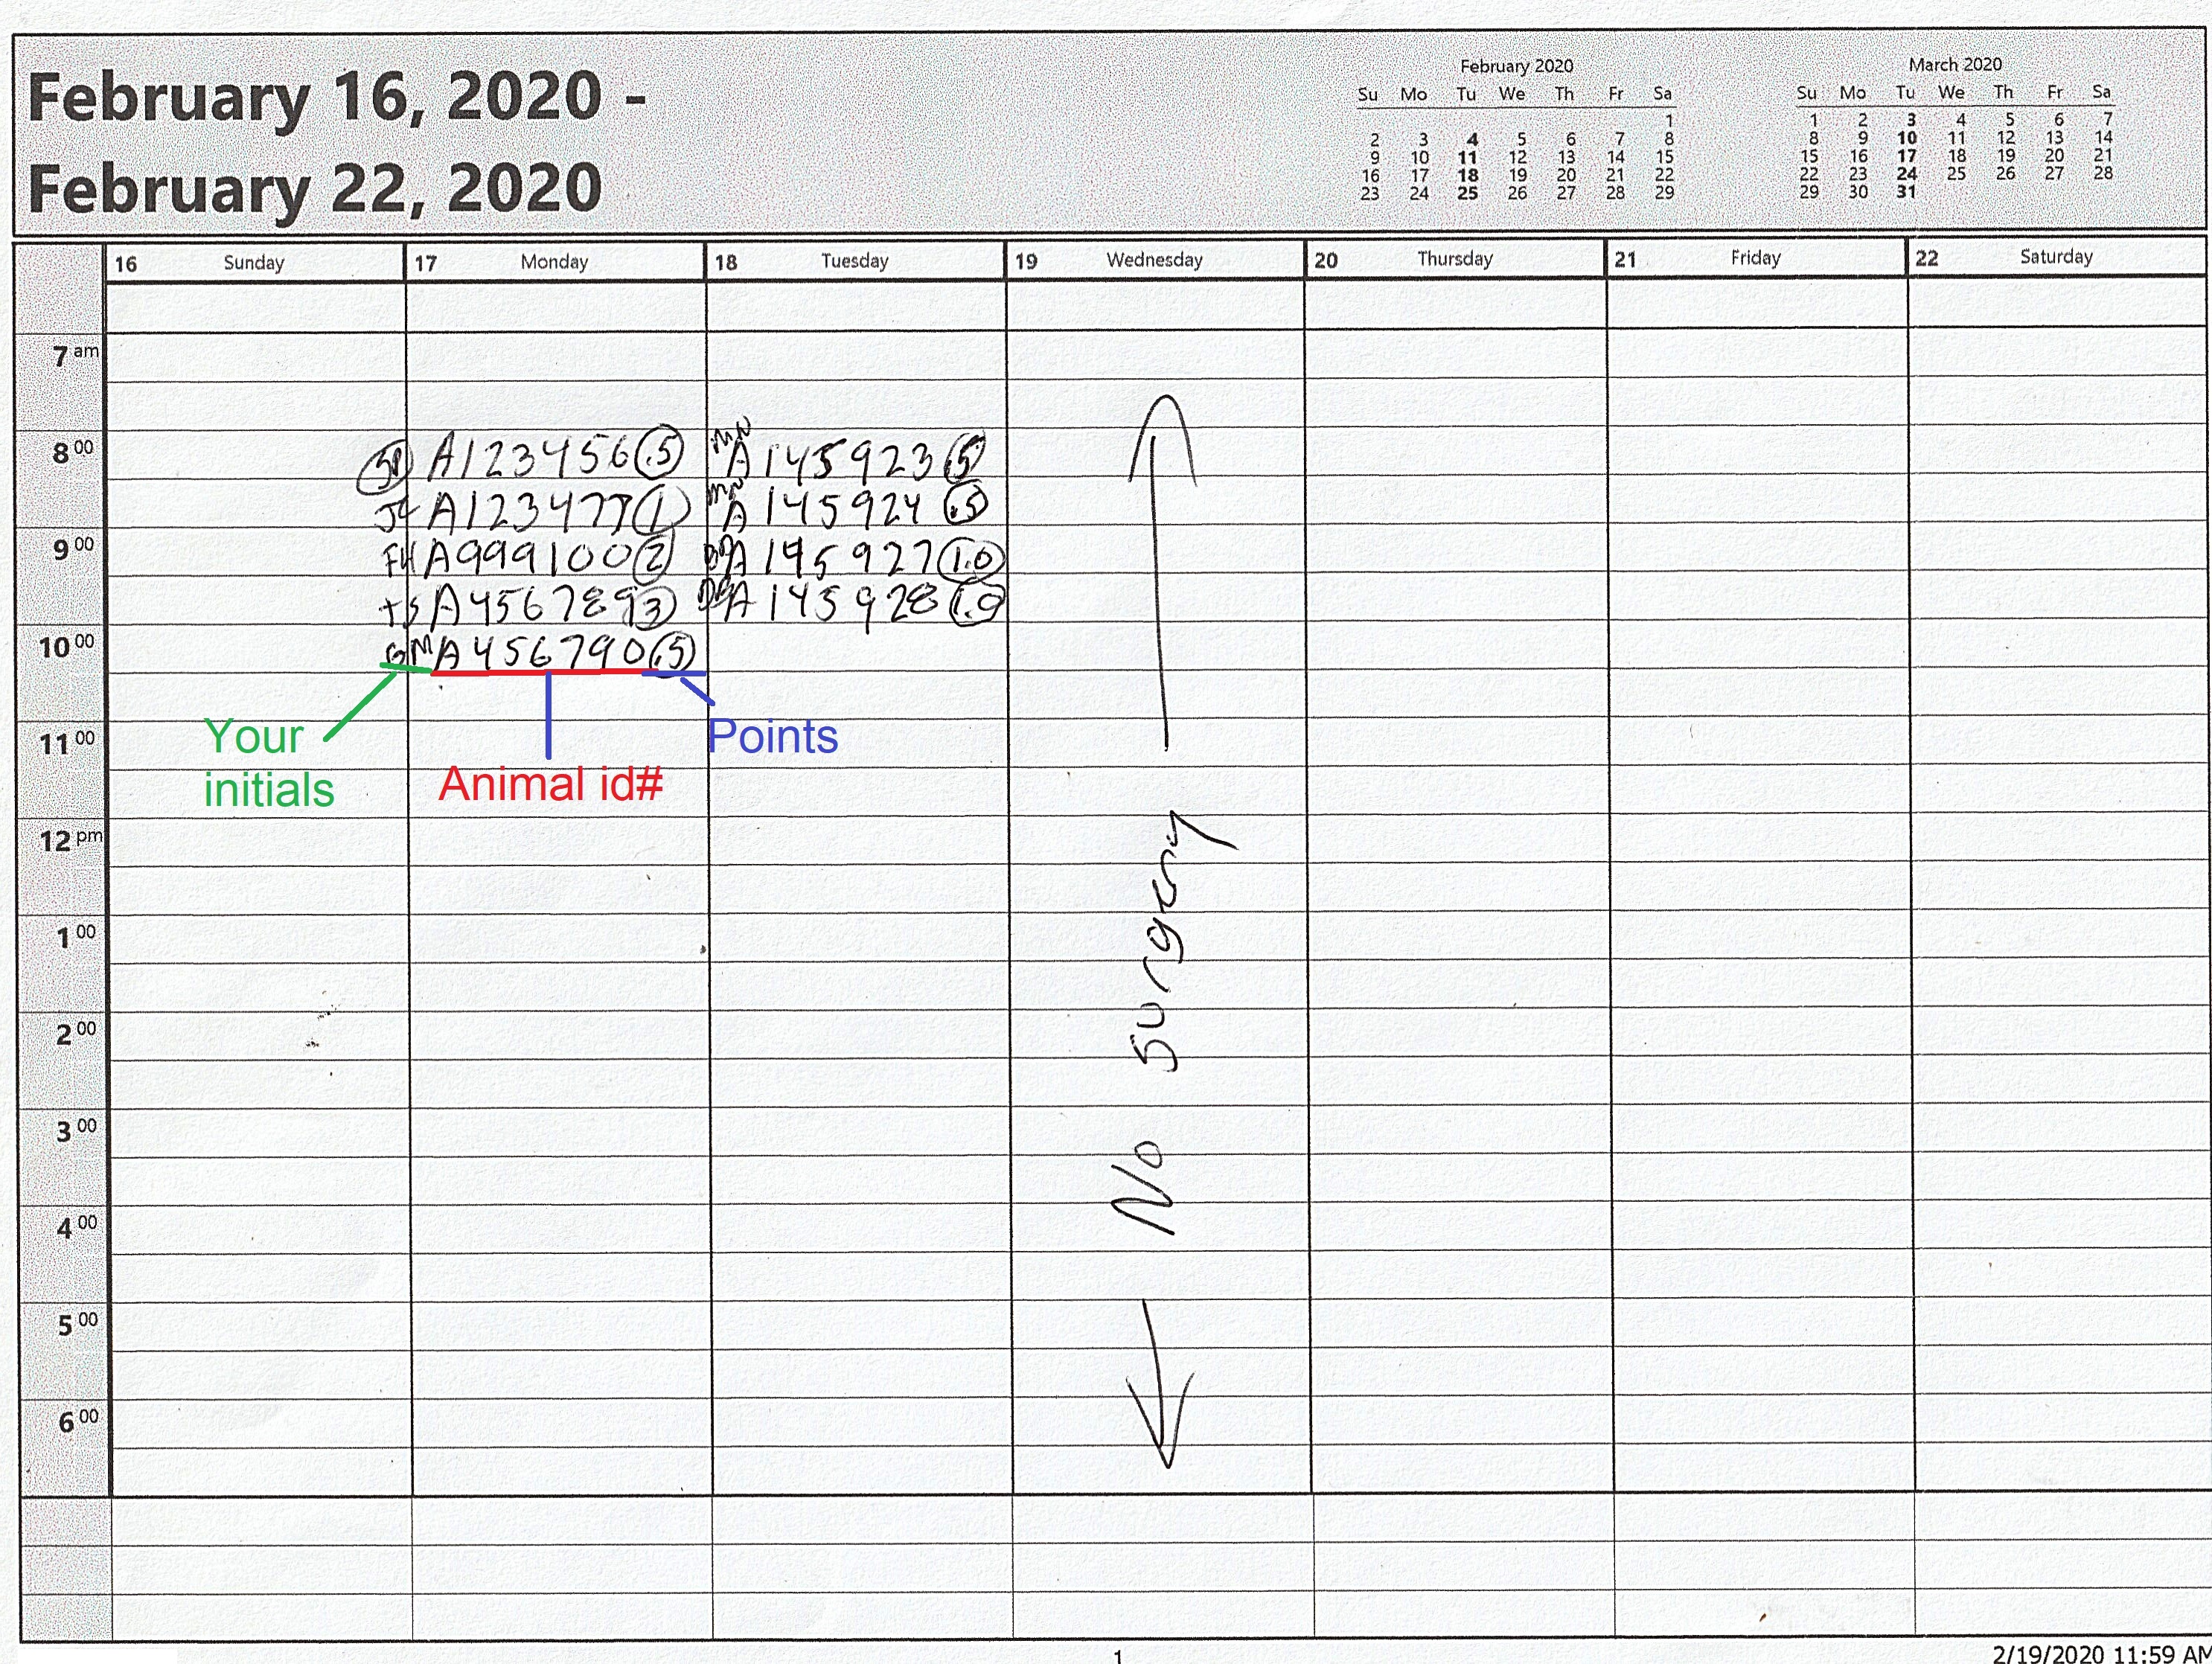 February 16, 2020 -
February 22, 2020
February 2020
Su Mo Tu We Th Fr Sa
1
2 3 4 5 6 7 8
9 10 11 12 13 14 15
16 17 18 19 20 21 22
23 24 25 26 27 28 29
March 2020
Su Mo Tu We Th Fr Sa
1 2 3 4 5 6 7
8 9 10 11 12 13 14
15 16 17 18 19 20 21
22 23 24 25 26 27 28
29 30 31
16 Sunday
17 Monday
18 Tuesday
19 Wednesday
20 Thursday
21 Friday
22 Saturday
7 am
8 00
9 00
10 00
11 00
12 pm
1 00
2 00
3 00
4 00
5 00
6 00
A123456 .5
A123477 1
FH A999100 2
TS A456789 3
BM A456790 .5
MN A145923 .5
MN A145924 .5
A145927 1.0
A145928 1.0
No surgery
Your
initials
Animal id#
Points
1
2/19/2020 11:59 AM